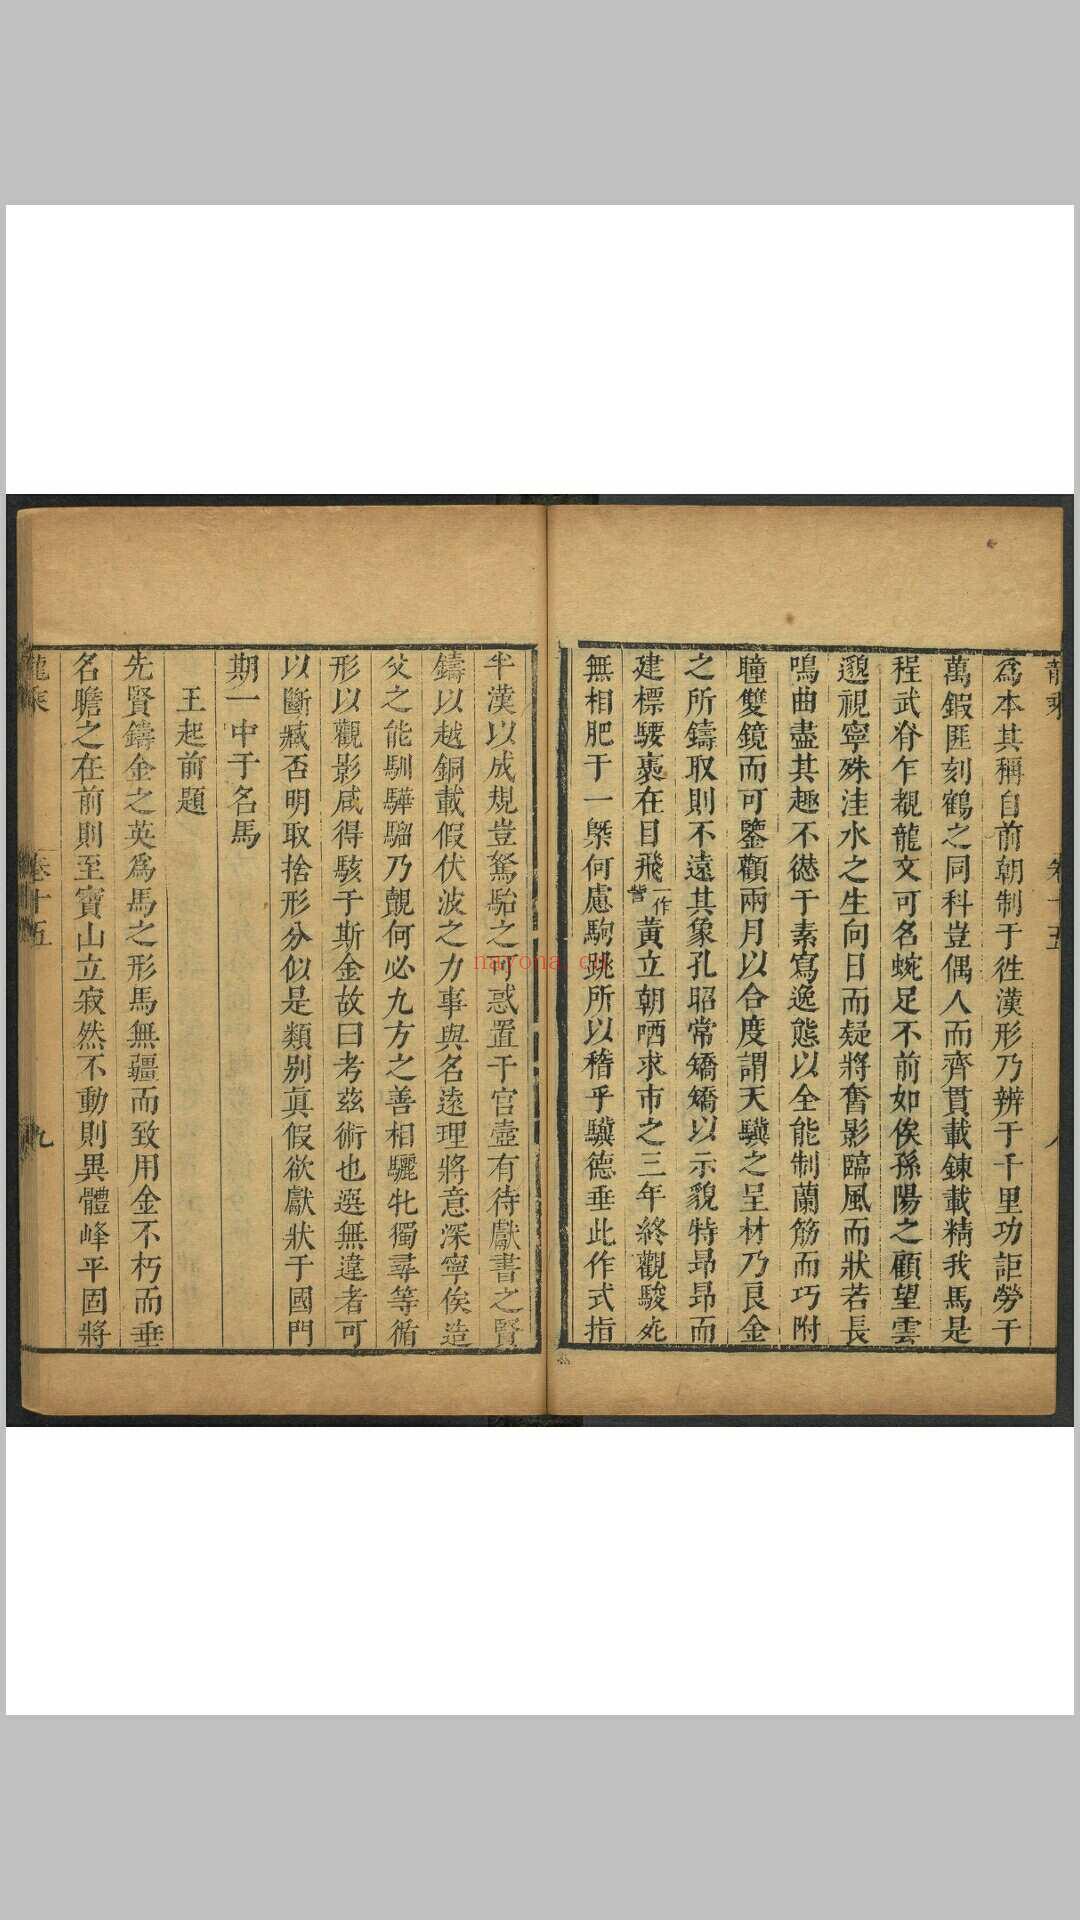 龍乘 卷十五 八
爲本其稱自前朝制于徃漢形乃辨于千里功詎勞于
萬鍜匪刻鶴之同科豈偶人而齊貫載鍊載精我馬是
程武脊乍覩龍文可名蜿足不前如俟孫陽之顧望雲
邈視寧殊洼水之生向日而疑將奮影臨風而狀若長
鳴曲盡其趣不愆于素寫逸態以全能制蘭筋而巧附
瞳雙鏡而可鑒顴兩月以合度謂天驥之呈材乃良金
之所鑄取則不遠其象孔昭常矯矯以示貌特昻昻而
建標騕褭在目飛一作訾黃立朝哂求市之三年終觀駿死
無相肥于一槩何慮駒跳所以稽乎驥德垂此作式指
半漢以成規豈駑駘之可惑置于官壼有待獻書之賢
鑄以越銅載假伏波之力事與名遠理將意深寧俟造
父之能馴驊騮乃覿何必九方之善相驪牝獨尋等循
形以觀影咸得駭于斯金故曰考兹術也選無違者可
以斷臧否明取捨形分似是類别眞假欲獻狀于國門
期一中于名馬
王起前題
先賢鑄金之英爲馬之形馬無疆而致用金不朽而垂
名瞻之在前則至寶山立寂然不動則異體峰平固將
龍乘 卷十五 九
nayona.cn